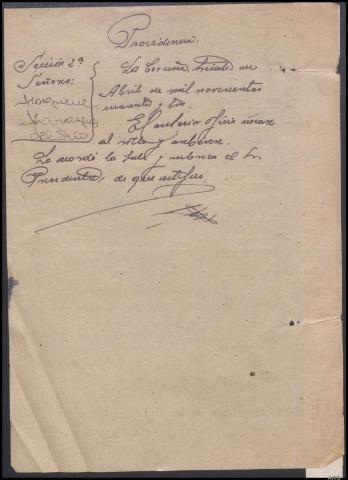 Providencia.
Sección 2ª
Señores:
del Río
La Coruña, treinta de
Abril de mil novecientos
cuarenta y tres.
El anterior oficio únase
al rollo y archívese.
Lo acordó la Sala y rubrica el Sr.
Presidente, de que certifico.